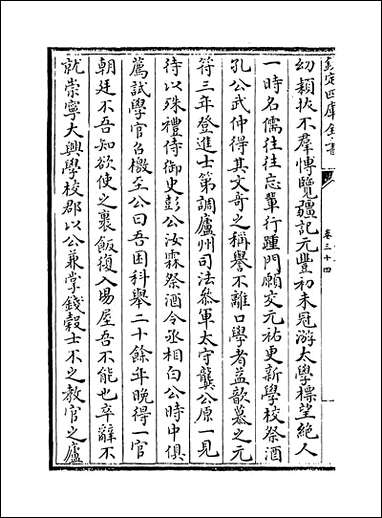 欽定四庫全書
卷三十四
幼穎拔不羣愽覽彊記元豐初未冠游太學標望絶人
一時名儒徃徃忘軰行踵門願交元祐更新學校祭酒
孔公武仲得其文竒之稱譽不離口學者益歆慕之元
符三年登進士第調廬州司法叅軍太守龔公原一見
待以殊禮侍御史彭公汝霖祭酒今丞相白公時中俱
薦試學官召檄至公曰吾困科舉二十餘年晚得一官
朝廷不吾知欲使之裹飯復入場屋吾不能也卒辭不
就崇寧大興學校郡以公兼掌錢穀士不之教官之廬